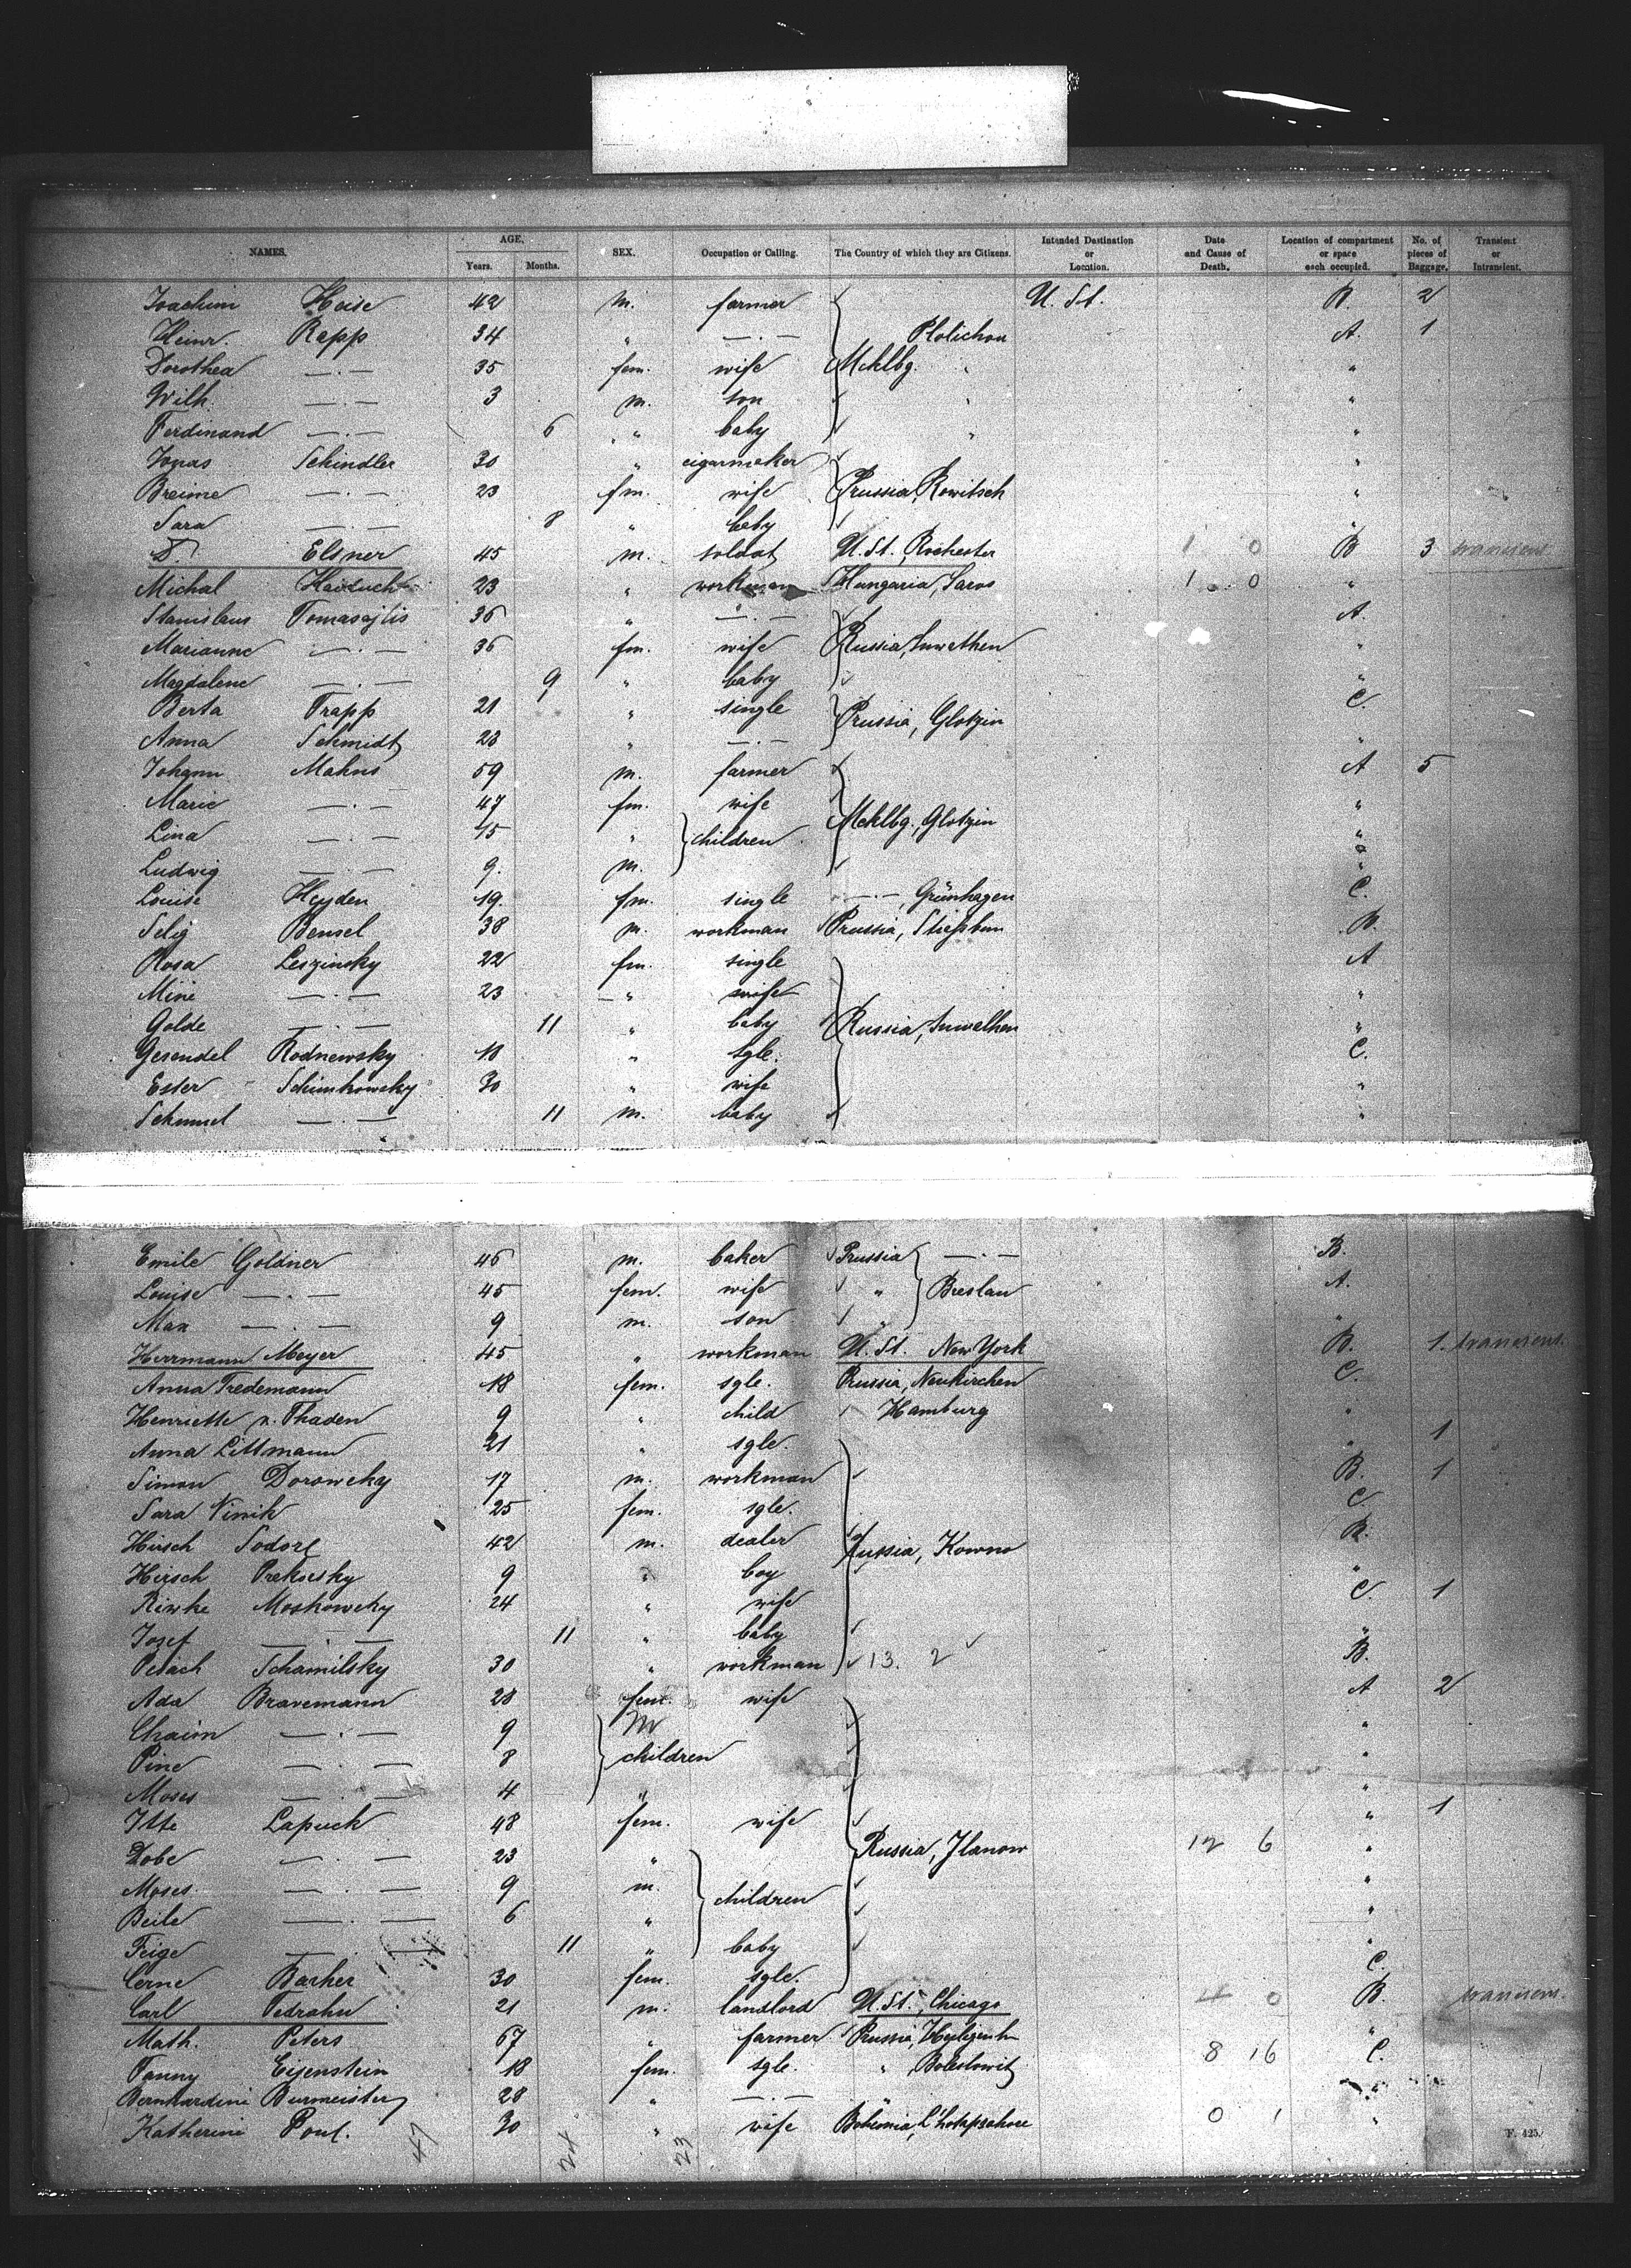 NAMES. AGE, SEX. Occupation or Calling. The Country of which they are Citizens. Intended Destination or Location. Date and Cause of Death. Location of compartment or space each occupied. No. of pieces of Baggage. Transient or Intransient.
Years. Months.
Joachim Heise 42 m. farmer U. St. B. 2
Heinr. Rapp 34 " —.— Plolichou A. 1
Dorothea —.— 35 fem. wife Mcklbg. " "
Wilh. —.— 3 m. son " "
Ferdinand —.— 6 " baby " "
Jonas Schindler 30 " cigarmaker "
Breime —.— 23 fm. wife Prussia, Rowitsch "
Sara —.— 8 " baby "
D. Elsner 45 m. soldat U. St. Rochester 1 0 B 3 transient
Michal Haiduch 23 " workman Hungaria, Saros 1 0 "
Stanislaus Tomasajtis 36 " —.— A.
Marianne —.— 36 fm. wife Russia, Suwalken "
Magdalene —.— 9 " baby "
Berta Trapp 21 " single Prussia, Glotzin C.
Anna Schmidt 23 " —.— "
Johann Mahns 59 m. farmer A 5
Marie —.— 47 fm. wife Mcklbg., Glotzin "
Lina —.— 15 " children "
Ludwig —.— 9. m. "
Louise Heyden 19. fm. single —.—, Grünhagen C.
Selig Bensel 38 m. workman Prussia, B.
Rosa Leszinsky 22 fm. single A
Mine —.— 23 —" wife "
Golde —.— 11 " baby Russia, Suwalken "
Gesendel Rodnewsky 18 " sgle. C.
Ester Schimkowsky 30 " wife "
Schmul —.— 11 m. baby "
Emile Goldner 46 m. baker Prussia —.— B.
Louise —.— 45 fem. wife " Breslau A.
Max —.— 9 m. son " "
Herrmann Meyer 45 " workman U. St. New York B. 1. transient
Anna Tredemann 18 fem. sgle. Prussia, Neukirchen C.
Henriette v. Thaden 9 " child Hamburg "
Anna Littmann 21 " sgle. " 1
Simon Dorowsky 17 m. workman B. 1
Sara Vinik 25 fem. sgle. C.
Hirsch Sodorf 42 m. dealer Russia, Kowno B.
Hirsch Prekoesky 9 " boy "
Riwke Moskowsky 24 " wife C. 1
Josef —.— 11 " baby "
Pesach Schamilsky 30 " workman 13. 2 B.
Ada Bravemann 28 fem. wife A 2
Chaim —.— 9 m "
Pine —.— 8 children "
Moses —.— 4 " "
Itte Lapuck 48 fem. wife " 1
Dobe —.— 23 " Russia, Jlanow 12 6 "
Moses —.— 9 m. children "
Beile —.— 6 " "
Feige —.— 11 " baby "
Cerne Barker 30 fem. sgle. C.
Carl Fedrahn 21 m. landlord U. St. Chicago 4 0 B. transient
Math. Peters 67 " farmer Prussia, "
Fanny Eysenstein 18 fem. sgle. " Boleslowitz 8 16 C.
Bernhardine Burmeister 28 " —.— "
Katherine Poul. 30 " wife Bohemia, 0 1 "
47 24 23
F. 425.